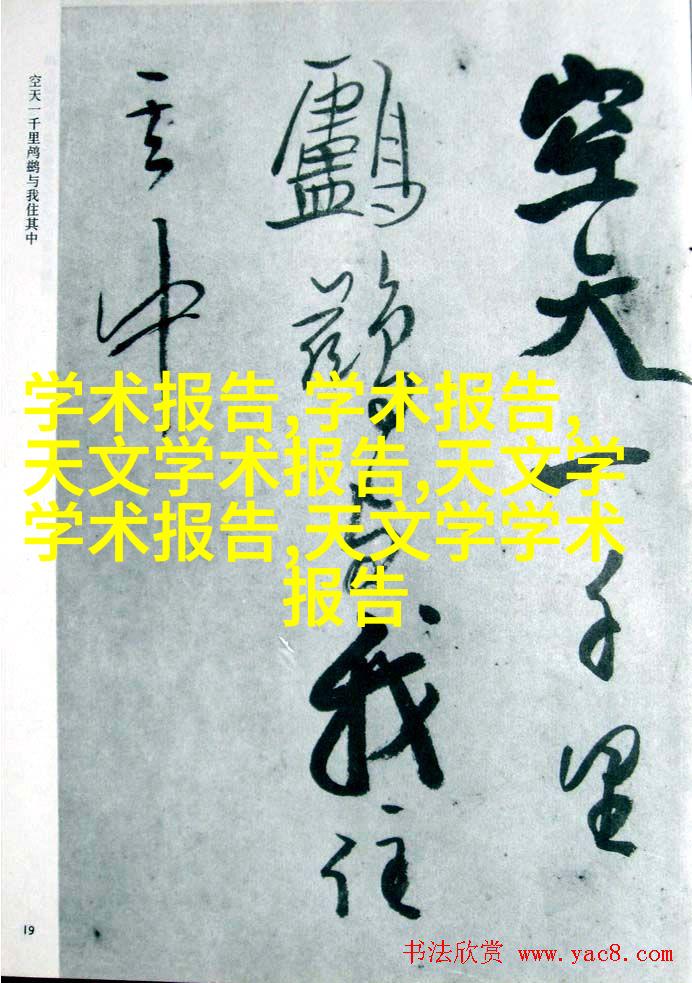 空天一千里
鸕鷀與我住
其中
空天一千里鸬鹚与我住其中
学术报告,学术报告,
天文学术报告,天文学
学术报告,天文学学术
报告
19
书法欣赏 www.yac8.com